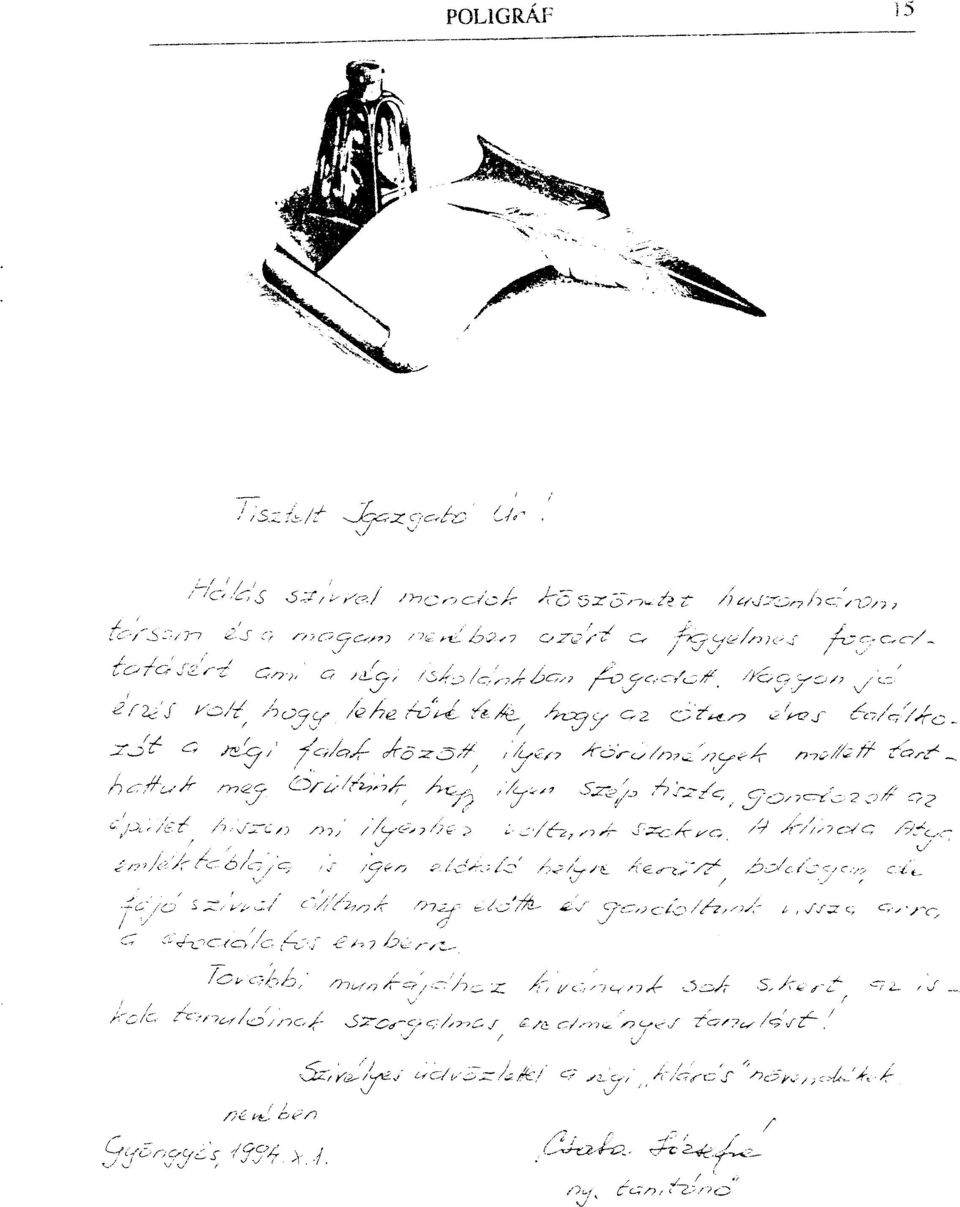 POLIGRÁF 15
Tisztelt Igazgató Úr!
Hálás szívvel mondok köszönetet huszonhárom
társam és a magam nevében azért a figyelmes fogad-
tatásért ami a régi iskolánkban fogadott. Nagyon jó
érzés volt, hogy lehetővé tette, hogy az ötven éves találko-
zót a régi falak között, ilyen körülmények mellett tart-
hattuk meg. Örültünk, hogy ilyen szép tiszta, gondozott az
épület, hiszen mi ilyenhez voltunk szokva. A Klinda Atya
emléktáblája is igen előkelő helyre került, boldogan, de
fájó szívvel álltunk meg előtte és gondoltunk vissza arra,
a csodálatos emberre.
További munkájához kívánunk sok sikert, az is-
kola tanulóinak szorgalmas, eredményes tanulást!
Szívélyes üdvözlettel a régi „klárás" növendékek
nevében
Gyöngyös, 1994. X. 1. Csaba Józsefné
ny. tanítónő